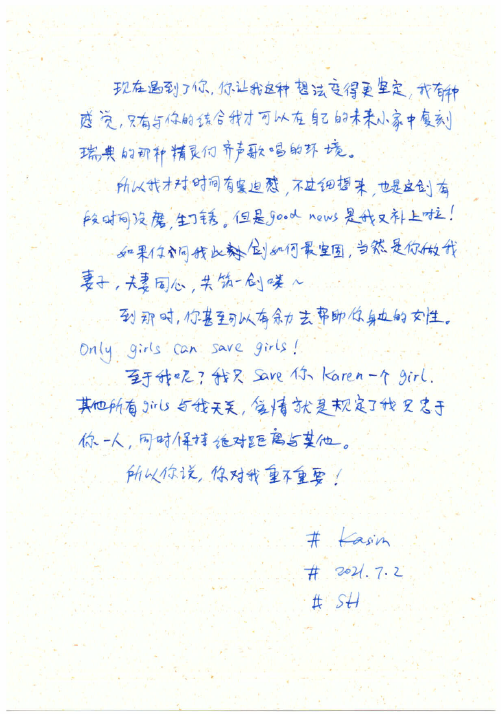 现在遇到了你，你让我这种想法变得更坚定，我有种
感觉，只有与你的结合我才可以在自己的未来小家中复刻
瑞典的那种精灵们齐声歌唱的环境。
所以我才对时间有紧迫感，不过细想来，也是这剑有
段时间没磨，生了锈。但是good news是我又补上啦！
如果你问我此剑如何最坚固，当然是你做我
妻子，夫妻同心，共筑一剑喽～
到那时，你甚至可以有余力去帮助你身边的女性。
Only girls can save girls!
至于我呢？我只 save 你 Karen 一个 girl.
其他所有girls与我无关，爱情就是规定了我只忠于
你一人，同时保持绝对距离与其他。
所以你说，你对我重不重要！
# Kasim
# 2021.7.2
# SH